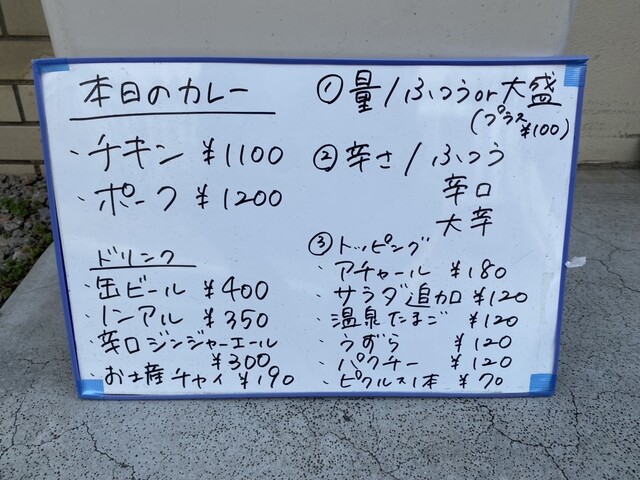 本日のカレー
・チキン ¥1100
・ポーク ¥1200
ドリンク
・缶ビール ¥400
・ノンアル ¥350
・辛口ジンジャーエール
¥300
・お土産チャイ ¥190
①量/ふつうor大盛
(プラス
¥100)
②辛さ/ふつう
辛口
大辛
③トッピング
・アチャール ¥180
・サラダ追加 ¥120
・温泉たまご ¥120
・うずら ¥120
・パクチー ¥120
・ピクルス1本 ¥70